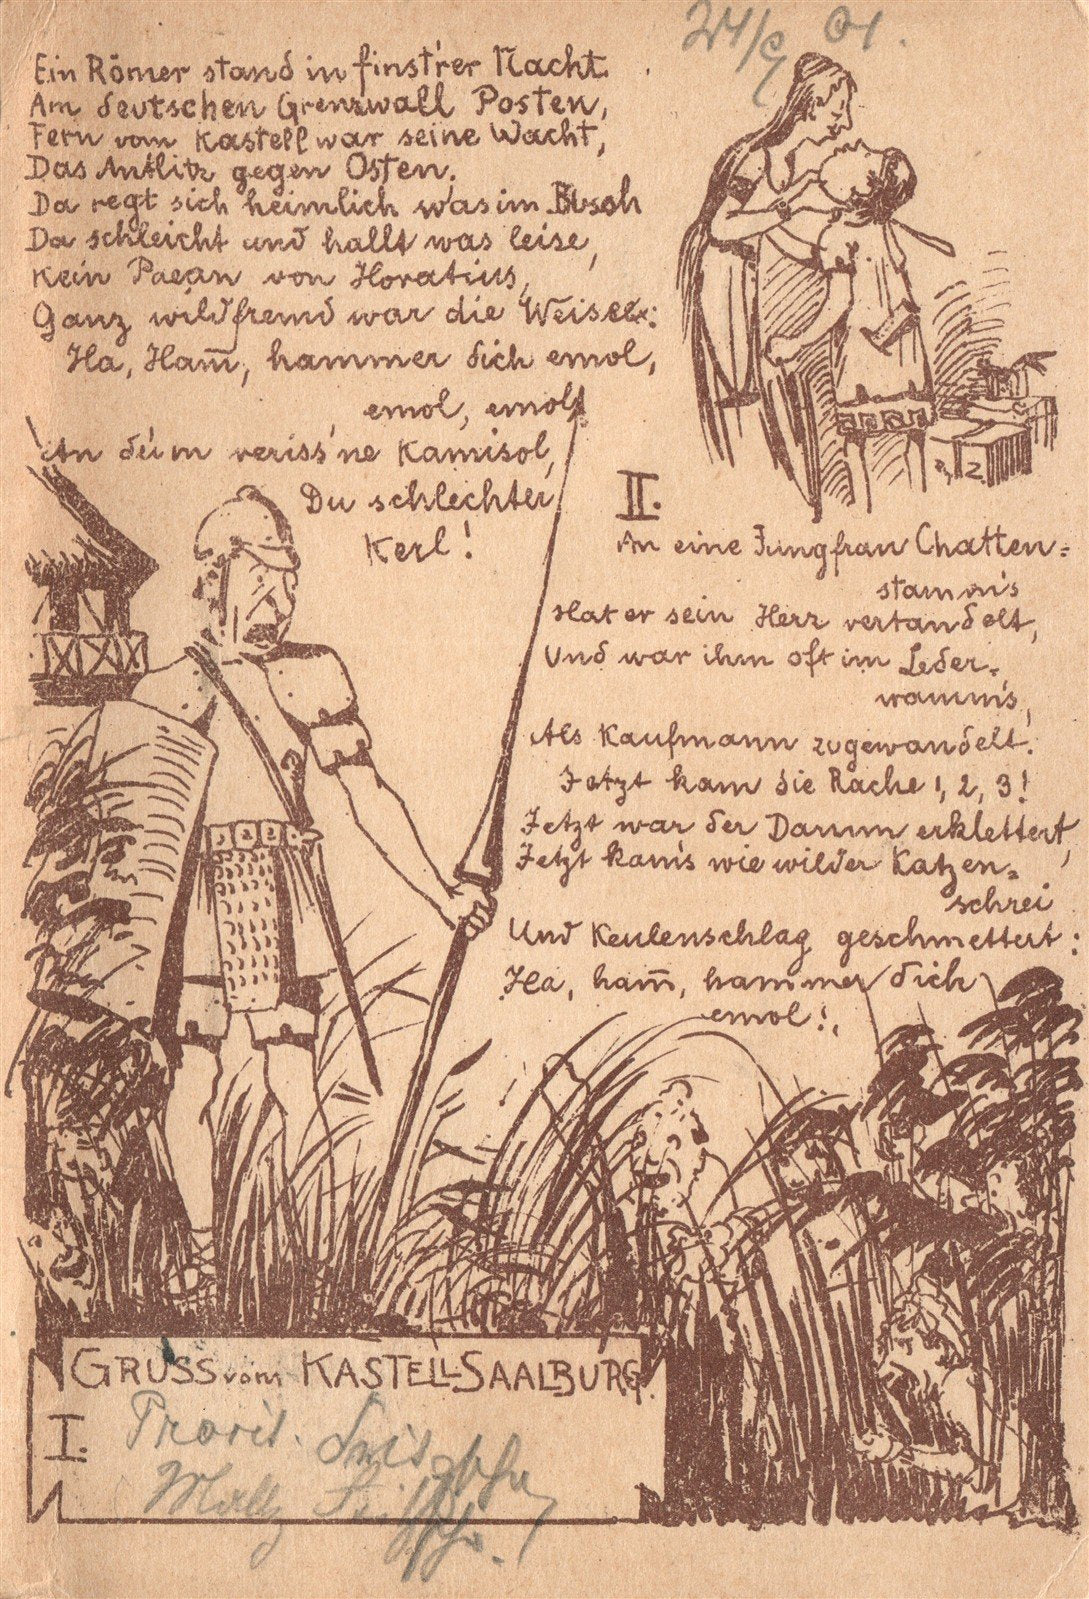 24/9 01.
Ein Römer stand in finst'rer Nacht.
Am deutschen Grenzwall Posten,
Fern vom Kastell war seine Wacht,
Das Antlitz gegen Osten.
Da regt sich heimlich was im Busch
Da schleicht und hallt was leise,
Kein Paean von Horatius,
Ganz wildfremd war die Weise:
Ha, Ham̅, hammer dich emol,
emol, emol,
An dei'm veriss'ne Kamisol,
Du schlechter
Kerl!
II.
An eine Jungfrau Chatten=
stamm's
Hat er sein Herz vertandelt,
Und war ihm oft im Leder=
wamms,
Als Kaufmann zugewandelt.
Jetzt kam die Rache 1, 2, 3!
Jetzt war der Damm erklettert,
Jetzt kam's wie wilder Katzen=
schrei
Und Keulenschlag geschmettert:
Ha, ham̅, hammer dich
emol!
GRUSS vom KASTELL-SAALBURG.
I.